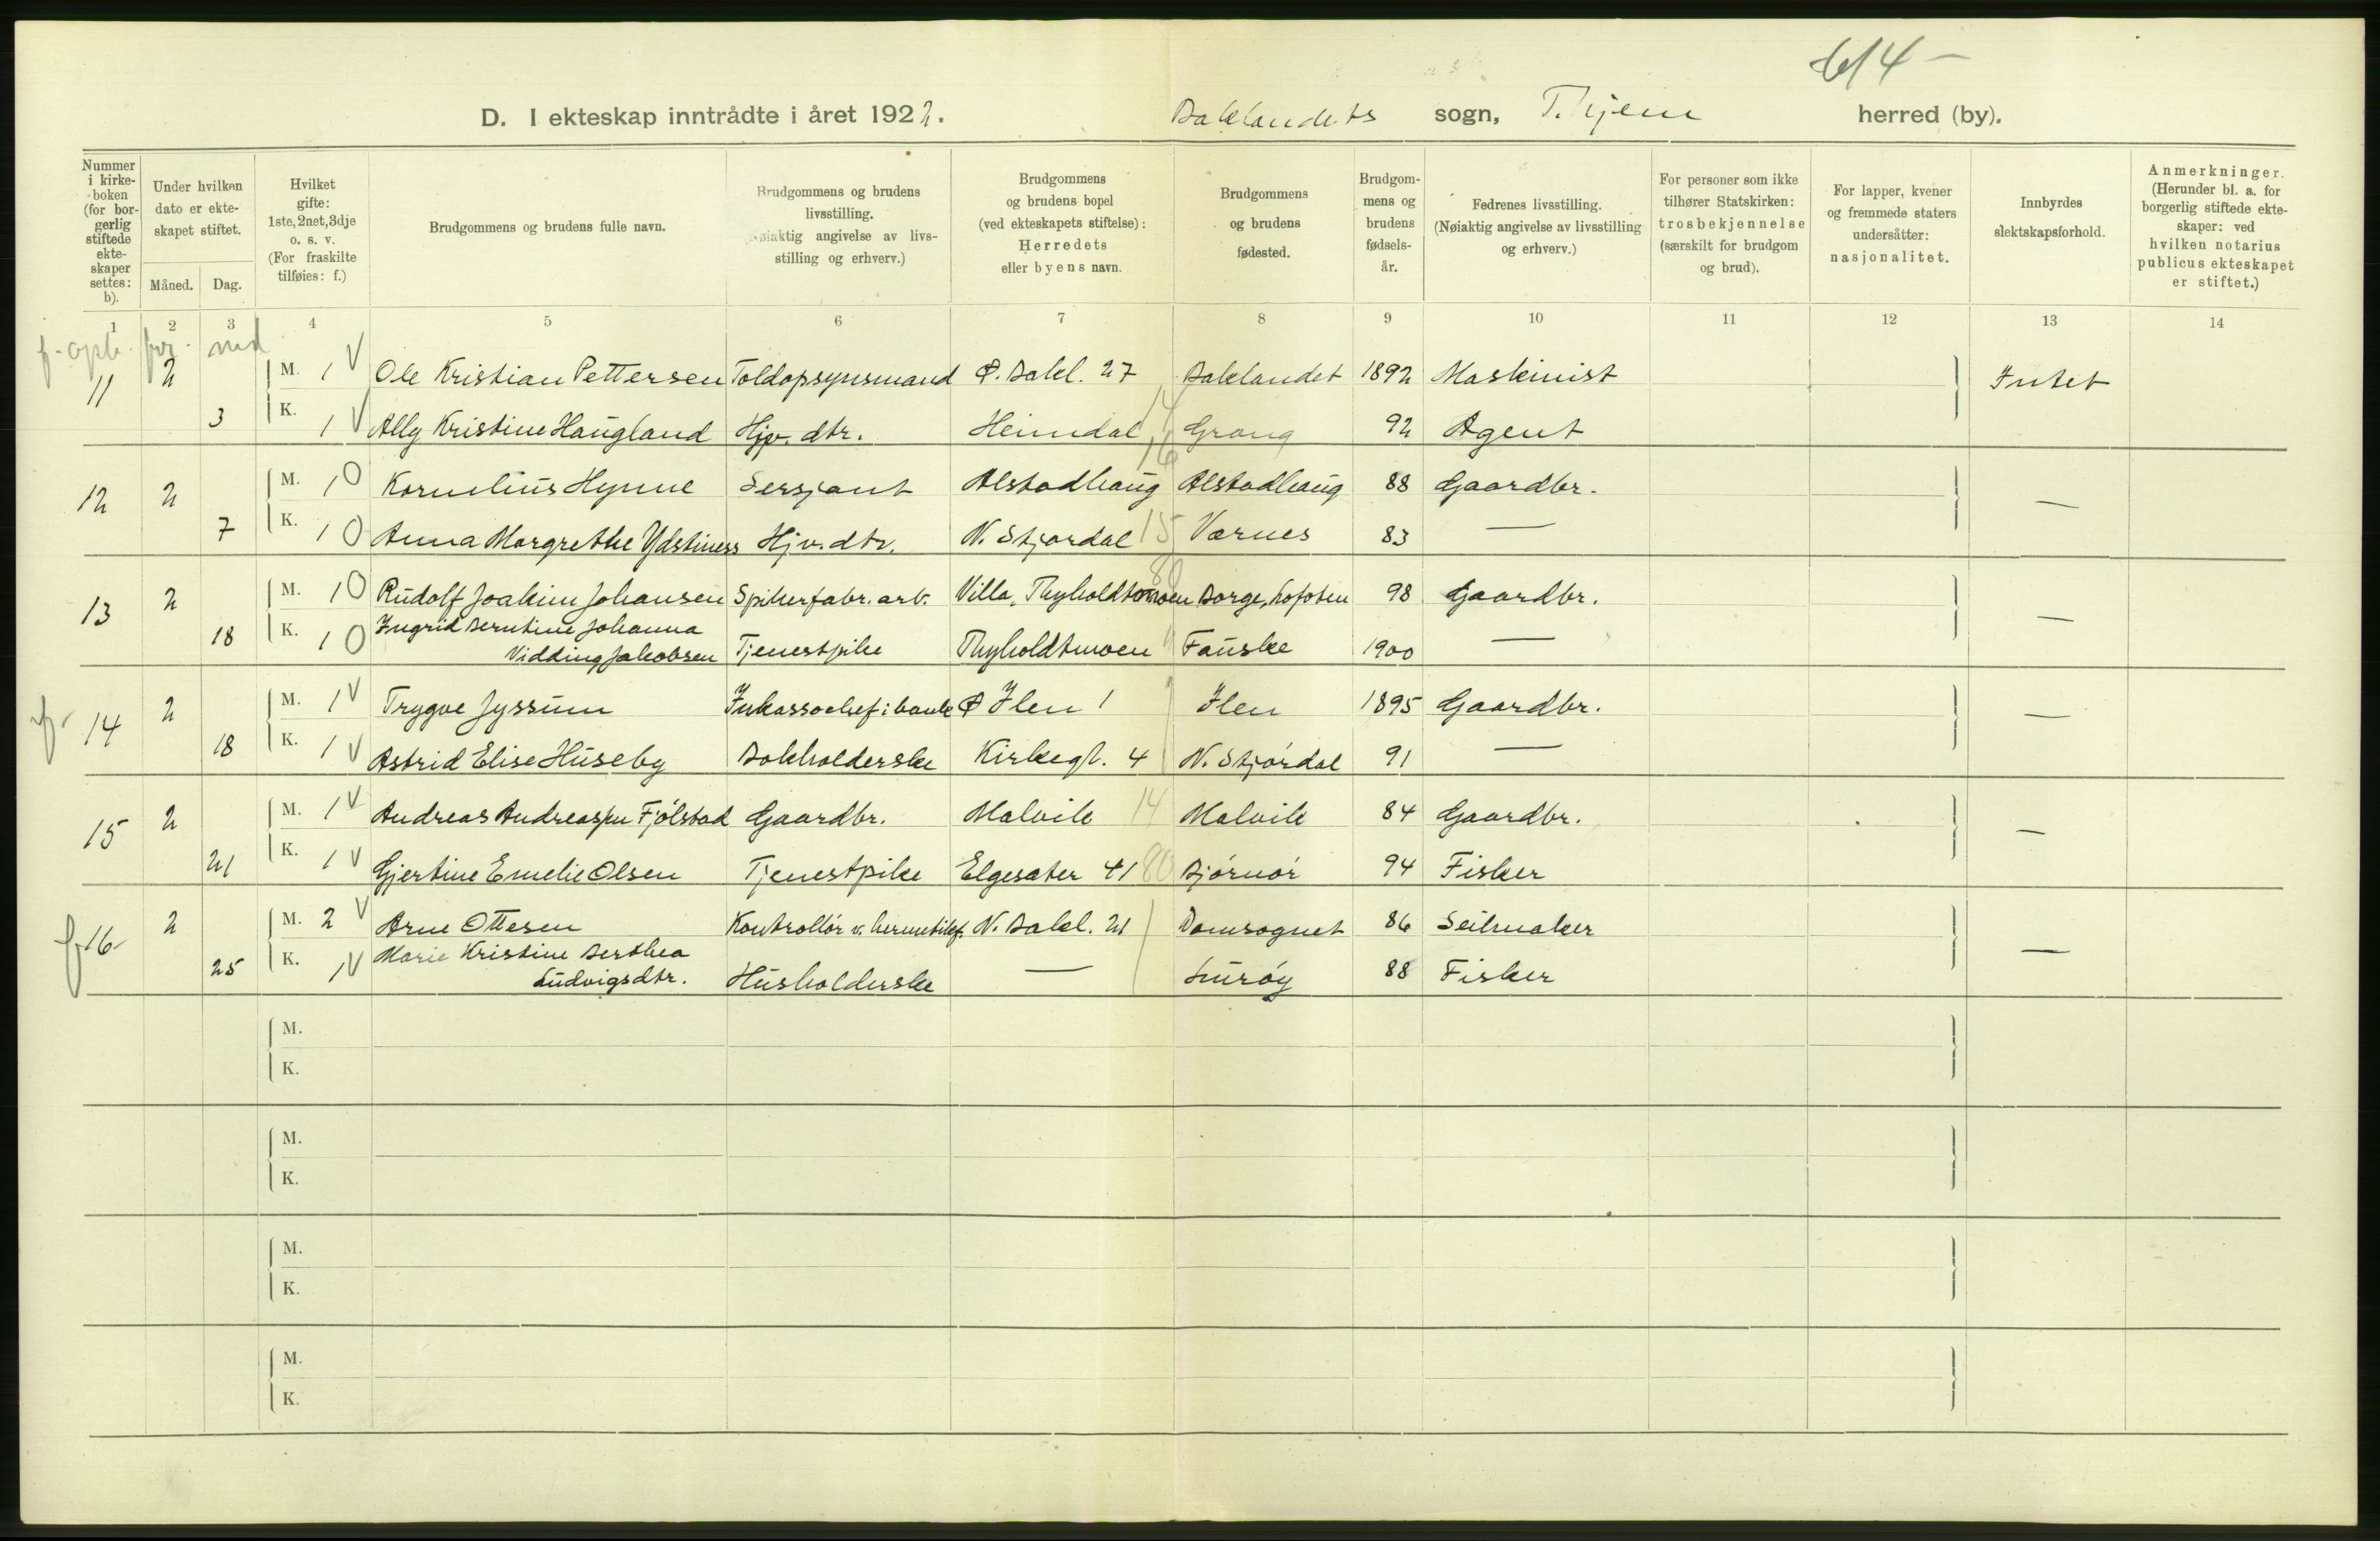 614 -
D. I ekteskap inntrådte i året 1922. Baklandets sogn, T.hjem herred (by).
Nummer i kirke-boken (for bor-gerlig stiftede ekte-skaper settes: b).
Under hvilken dato er ekte-skapet stiftet.
Måned. Dag.
Hvilket gifte: 1ste, 2net, 3dje o. s. v. (For fraskilte tilføies: f.)
Brudgommens og brudens fulle navn.
Brudgommens og brudens livsstilling. (Nøiaktig angivelse av livs-stilling og erhverv.)
Brudgommens og brudens bopel (ved ekteskapets stiftelse): Herredets eller byens navn.
Brudgommens og brudens fødested.
Brudgom-mens og brudens fødsels-år.
Fedrenes livsstilling. (Nøiaktig angivelse av livsstilling og erhverv.)
For personer som ikke tilhører Statskirken: trosbekjennelse (særskilt for brudgom og brud).
For lapper, kvener og fremmede staters undersåtter: nasjonalitet.
Innbyrdes slektskapsforhold.
Anmerkninger. (Herunder bl. a. for borgerlig stiftede ekte-skaper: ved hvilken notarius publicus ekteskapet er stiftet.)
1 2 3 4 5 6 7 8 9 10 11 12 13 14
11 2 M. 1 V Ole Kristian Pettersen Toldopsynsmand Ø. Bakl. 27 Baklandet 1892 Maskinist Intet
3 K. 1 V Ally Kristine Haugland Hjv. dtr. Heimdal Grong 92 Agent
12 2 M. 1 0 Kornelius Hynne Sersjant Alstadhaug Alstadhaug 88 Gaardbr. —
7 K. 1 0 Anna Margrethe Ydstiness Hjv. dtr. N. Stjørdal 15 Værnes 83 —
13 2 M. 1 0 Rudolf Joakim Johansen Spikerfabr. arb. Villa, Thyholdtmoen Borge, Lofoten 98 Gaardbr. —
Ingrid Berntine Johanna
18 K. 1 0 Vidding Jakobsen Tjenestpike Thyholdtmoen Fauske 1900 —
14 2 M. 1 V Trygve Jyssum Inkassochef i bank Ø Ilen 1 Ilen 1895 Gaardbr. —
18 K. 1 V Astrid Elise Huseby Bokholderske Kirkegt. 4 N. Stjørdal 91 —
15 2 M. 1 V Andreas Andreassen Fjølstad Gaardbr. Malvik 14 Malvik 84 Gaardbr. —
21 K. 1 V Gjertine Emelie Olsen Tjenestpike Elgesæter 41 80 Bjørnør 94 Fisker
16 2 M. 2 V Arne Ottesen Kontrollør v. hermetikf. N. Bakl. 21 Domsognet 86 Seilmaker —
Marie Kristine Berthea
25 K. 1 V Ludvigsdtr. Husholderske — Lurøy 88 Fisker
M.
K.
M.
K.
M.
K.
M.
K.